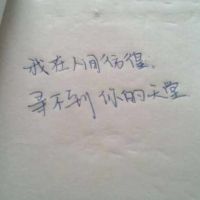 我在人间彷徨,
寻不到你的天堂